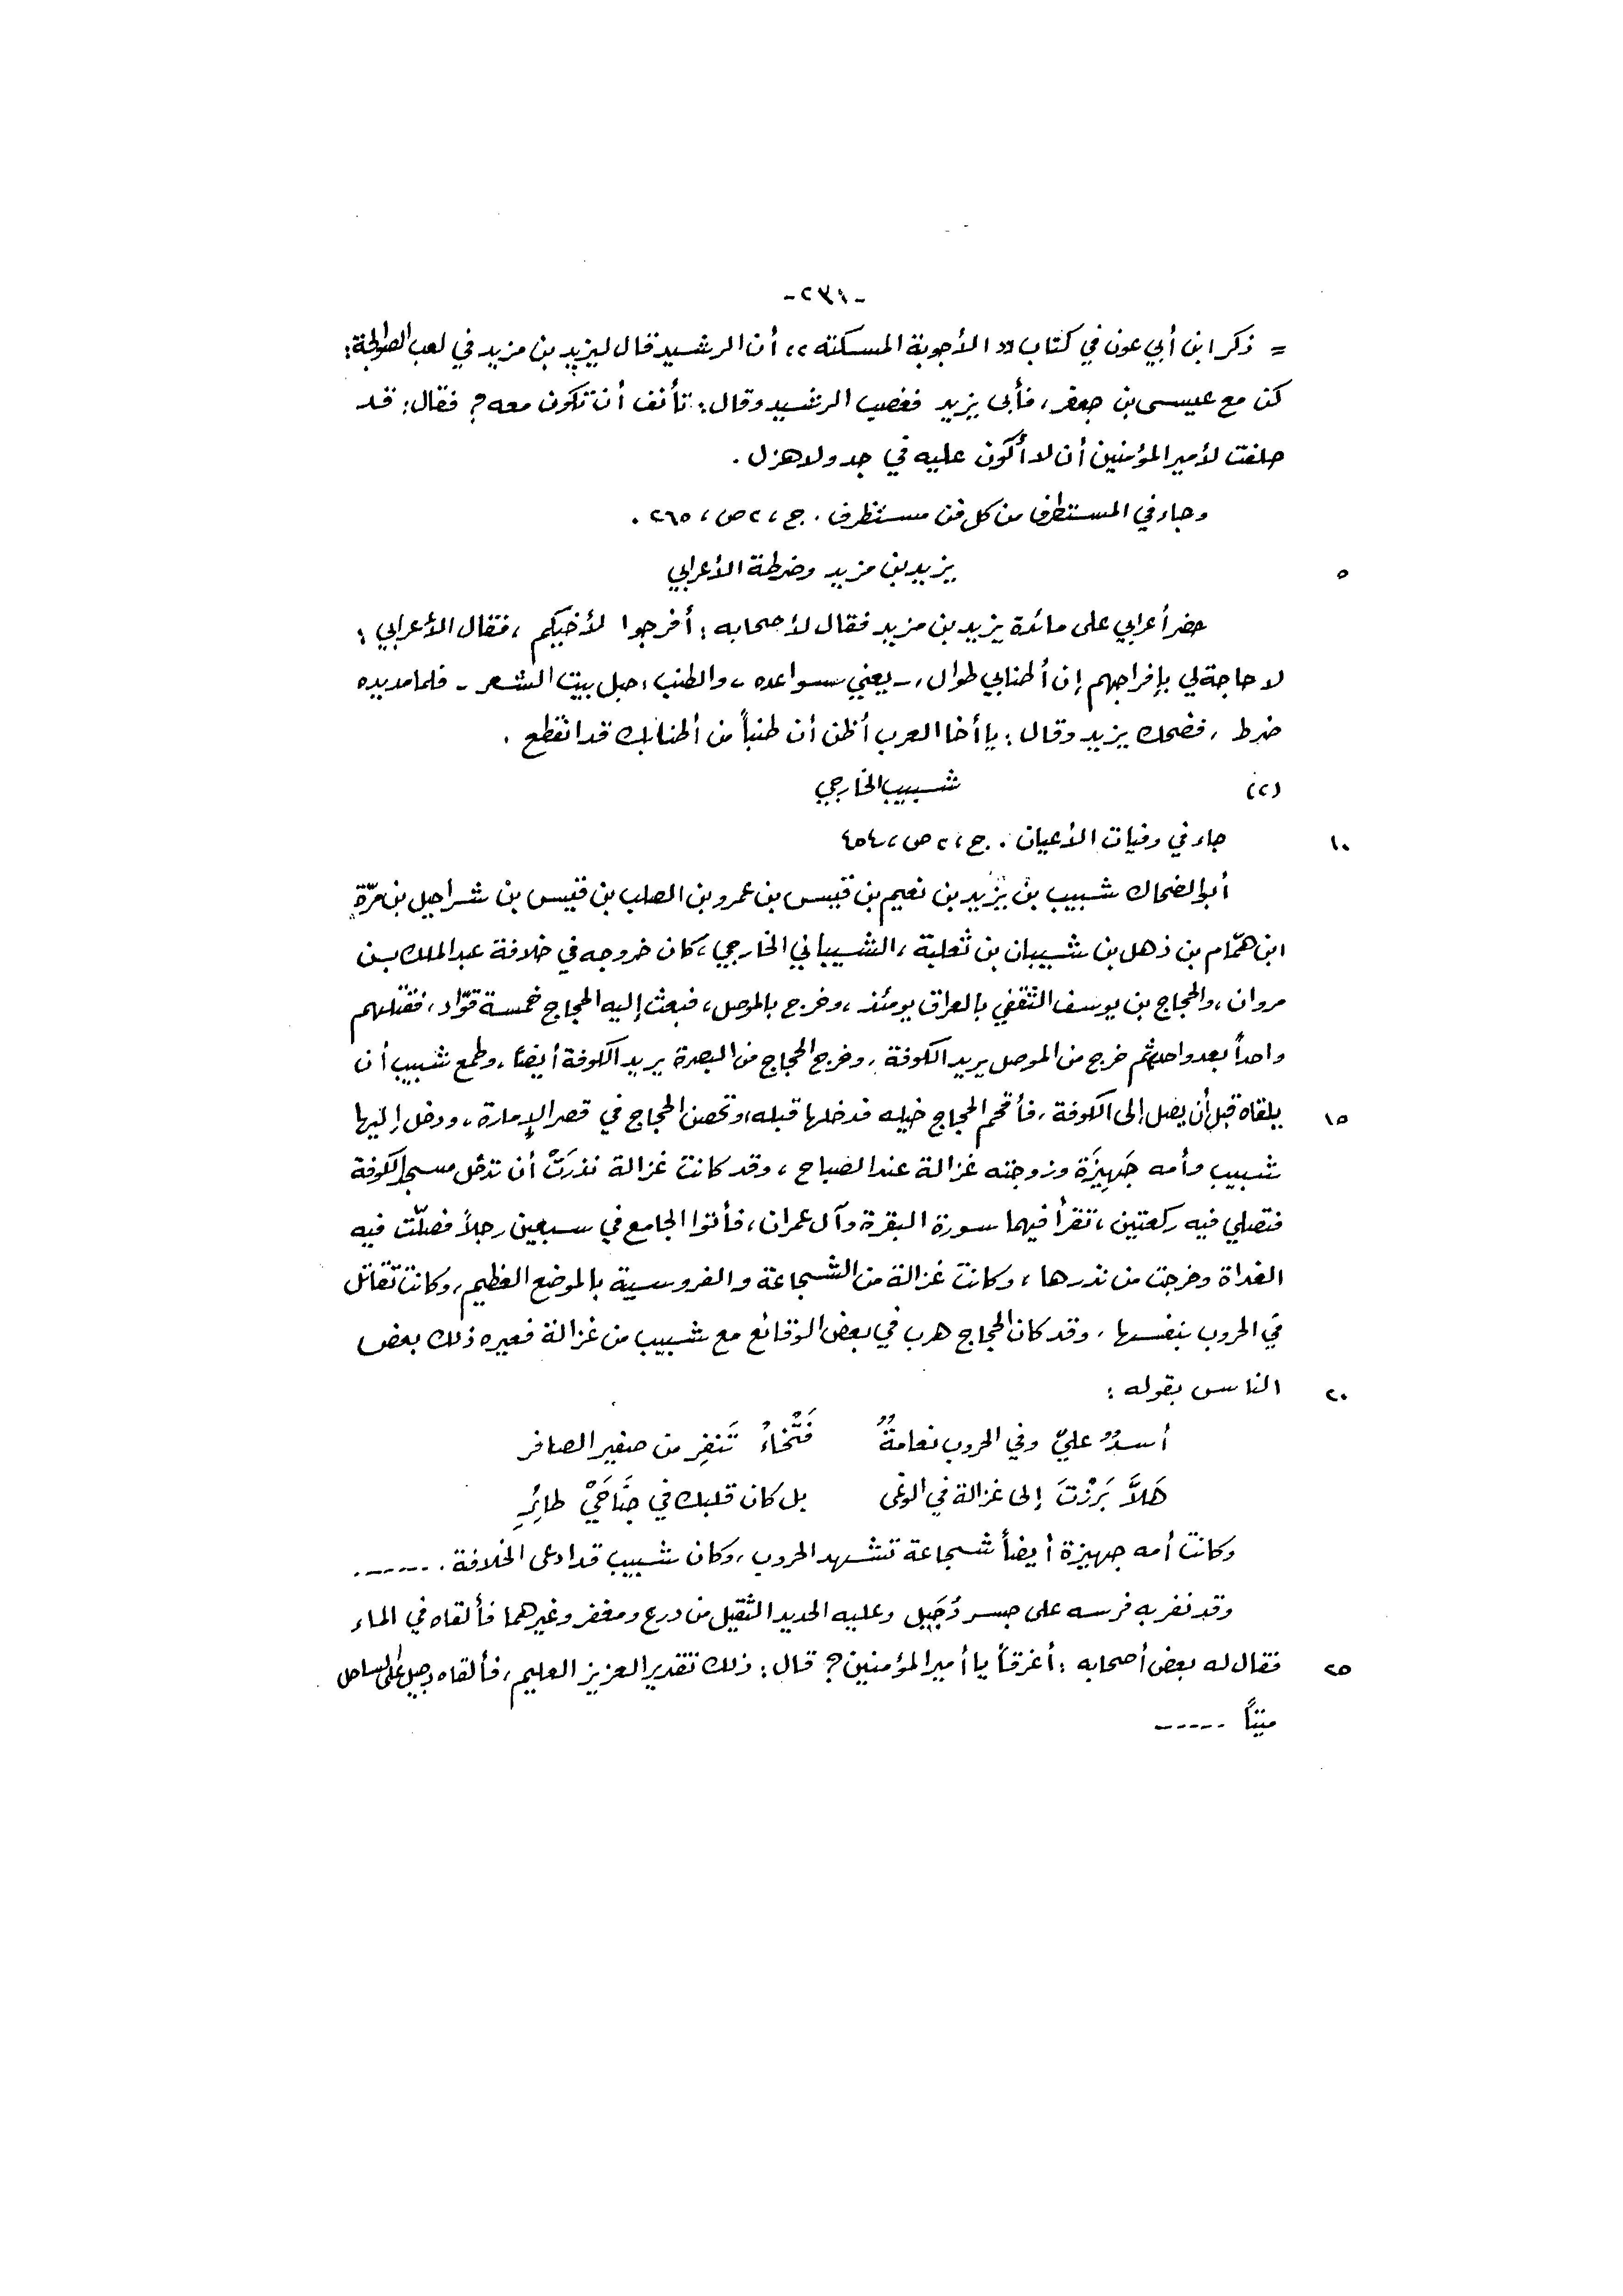 -٢٣١-
= ذكر ابن أبي عون في كتاب «الأجوبة المسكتة» أن الرشيد قال ليزيد بن مزيد في لعب الصوالجة:
كن مع عيسى بن جعفر، فأبى يزيد فغضب الرشيد وقال: تأنف أن تكون معه؟ فقال: قد
حلفت لأمير المؤمنين أن لا أكون عليه في جد ولا هزل .
وجاء في المستطرف من كل فن مستظرف . ج ، ٢ ص ، ٢٦٥ .
يزيد بن مزيد وضرطة الأعرابي
٥
حضر أعرابي على مائدة يزيد بن مزيد فقال لأصحابه : أفرجوا لأخيكم ، فقال الأعرابي :
لا حاجة لي بإفراجهم إن أطنابي طوال ، - يعني سواعده ، والطنب ، حبل بيت الشعر - فلما مد يده
ضرط ، فضحك يزيد وقال : يا أخا العرب أظن أن طنباً من أطنابك قد انقطع .
(٢) شبيب الخارجي
١٠ جاء في وفيات الأعيان . ج ، ٢ ص ، ٤٥٤
أبو الضحاك شبيب بن يزيد بن نعيم بن قيس بن عمرو بن الصلب بن قيس بن شراحيل بن مرّة
ابن همّام بن ذهل بن شيبان بن ثعلبة ، الشيباني الخارجي ، كان خروجه في خلافة عبد الملك بن
مروان ، والحجاج بن يوسف الثقفي بالعراق يومئذ ، وخرج بالموصل ، فبعث إليه الحجاج خمسة قوّاد ، فقتلهم
واحداً بعد واحد ثم خرج من الموصل يريد الكوفة ، وخرج الحجاج من البصرة يريد الكوفة أيضاً ، وطمع شبيب أن
١٥ يلقاه قبل أن يصل إلى الكوفة ، فأقحم الحجاج خيله فدخلها قبله ، وتحصن الحجاج في قصر الإمارة ، ودخل إليها
شبيب وأمه جَهِيزَة وزوجته غزالة عند الصباح ، وقد كانت غزالة نذرَتْ أن تدخل مسجد الكوفة
فتصلي فيه ركعتين ، تقرأ فيهما سورة البقرة وآل عمران ، فأتوا الجامع في سبعين رجلاً فصلّت فيه
الغداة وخرجت من نذرها ، وكانت غزالة من الشجاعة والفروسية بالموضع العظيم ، وكانت تقاتل
في الحروب بنفسها ، وقد كان الحجاج هرب في بعض الوقائع مع شبيب من غزالة فعيره ذلك بعض
٢٠ الناس بقوله :
أسدٌ عليّ وفي الحروب نعامةٌ فَتْخاءُ تَنفِر من صفير الصافر
هَلاَّ بَرَزْتَ إلى غزالة في الوغى بل كان قلبك في جَنَاحَيْ طائِرِ
وكانت أمه جهيزة أيضاً شجاعة تشهد الحروب ، وكان شبيب قد ادعى الخلافة . ------ .
وقد نفر به فرسه على جسر دُجَيل وعليه الحديد الثقيل من درع ومغفر وغيرهما فألقاه في الماء
٢٥ فقال له بعض أصحابه : أغرقاً يا أمير المؤمنين ؟ قال : ذلك تقدير العزيز العليم ، فألقاه دجيل على الساحل
ميتاً ------